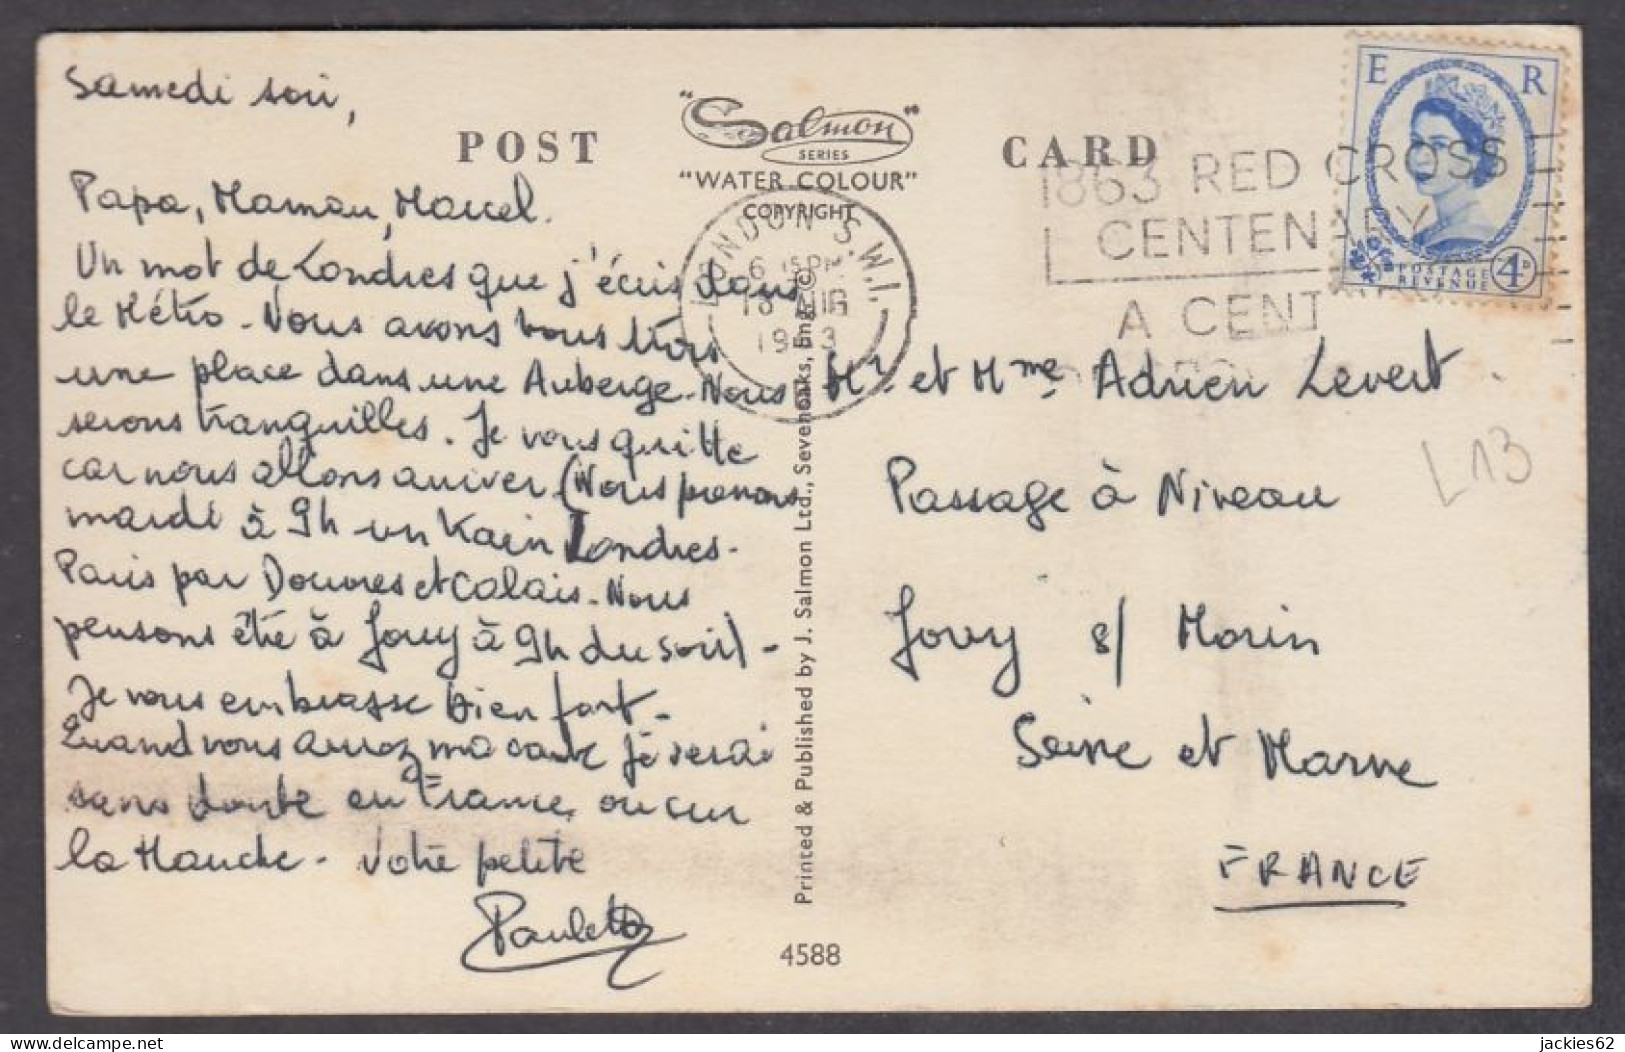 Samedi soir,
Papa, Maman, Marcel.
Un mot de Londres que j'écris dans
le Métro. Nous avons tous trois
une place dans une Auberge. Nous
serons tranquilles. Je vous quitte
car nous allons arriver. (Nous prenons
mardi à 9h un train Londres-
Paris par Douvres et Calais. Nous
pensons être à Jouy à 9h du soir) -
Je vous embrasse bien fort.
Quand vous aurez ma carte je serai
sans doute en France, ou sur
la Manche. Votre petite
Paulette
POST CARD
"Salmon"
SERIES
"WATER COLOUR"
COPYRIGHT
LONDON S.W.1.
6 15 PM
AUG
1863 RED CROSS
CENTENARY
A CENT
E R
POSTAGE
REVENUE
4D
Mr. et Mme Adrien Levert.
Passage à Niveau
Jouy s/ Morin
Seine et Marne
FRANCE
L13
Printed & Published by J. Salmon Ltd., Sevenoaks, Eng. ©
4588
jackies62